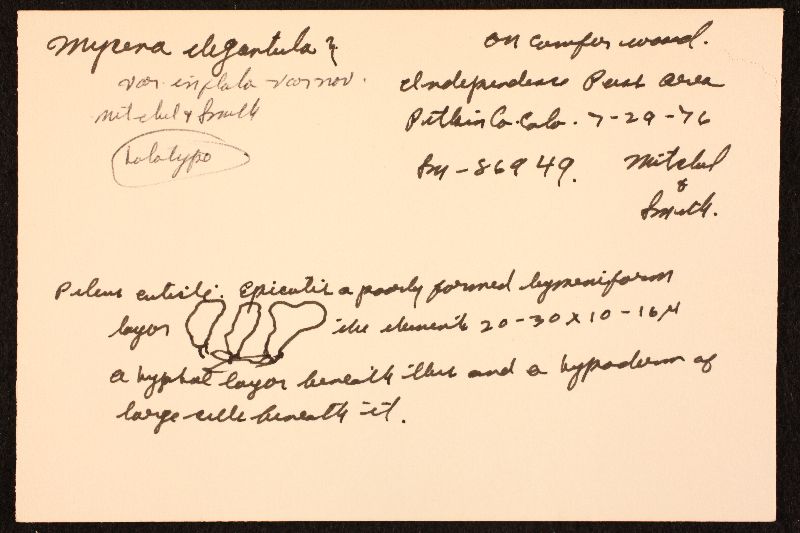 Mycena elegantula
on conifer wood.
var. inflata var nov.
Independence Pass area
Mitchel & Smith
Pitkin Co. Colo. 7-29-76
holotype
Sm-86949. Mitchel
&
Smith.
Pileus cuticle: Epicutis a poorly formed hymeniform
layer the elements 20-30 x 10-16 µ
a hyphal layer beneath this and a hypoderm of
large cells beneath it.